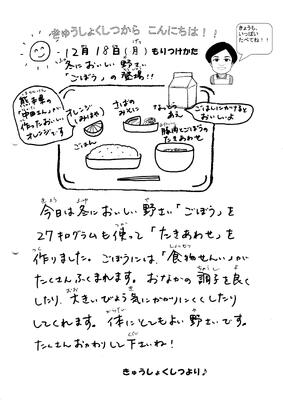 きゅうしょくしつから こんにちは！！
きょうも、
いっぱい
たべてね！！
12月18日(月) もりつけかた
冬においしい野さい
「ごぼう」の登場！！
熊本県の
作ったおいしい
オレンジです
オレンジ
さばの
みそに
なっとう
あえ
ごはんにかけると
おいしいよ
豚肉とごぼうの
たきあわせ
ごはん
今日は冬においしい野さい「ごぼう」を
27キログラムも使って「たきあわせ」を
作りました。ごぼうには、「食物せんい」が
たくさんふくまれます。おなかの調子を良く
したり、大きいびょう気にかかりにくくしたり
してくれます。体にとてもよい野さいです。
たくさんおかわりして下さいね！
きゅうしょくしつより♪